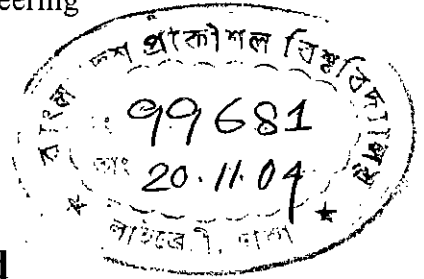 eering
বাংলাদেশ প্রকৌশল বিশ্ববিদ্যালয়
নং 99681
তাং 20.11.04
লাইব্রেরী, ঢাকা
d